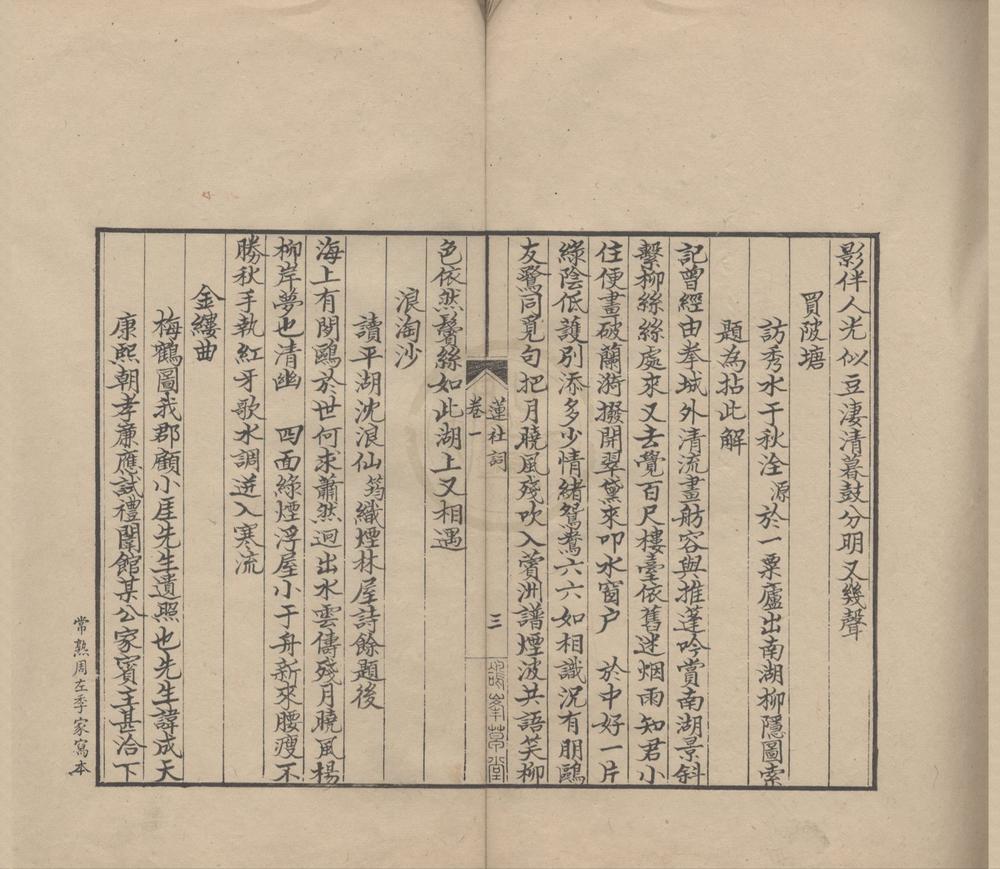 影伴人光似豆淒清暮鼓分明又幾聲
買陂塘
訪秀水于秋淦源於一粟廬出南湖柳隱圖索
題為拈此解
記曾經由拳城外清流畫舫容與推蓬吟賞南湖景斜
繫柳絲絲處來又去覺百尺樓臺依舊迷烟雨知君小
住便畫破蘭漪撥開翠黛來叩水窗戶　於中好一片
綠陰低護別添多少情緒鴛鴦六六如相識況有朋鷗
友鷺同覓句把月曉風殘吹入蘋洲譜煙波共語笑柳
蓮社詞
卷一
三
草堂
色依然鬢絲如此湖上又相遇
浪淘沙
讀平湖沈浪仙筠織煙林屋詩餘題後
海上有閒鷗於世何求蕭然迥出水雲儔殘月曉風楊
柳岸夢也清幽　四面綠煙浮屋小于舟新來腰瘦不
勝秋手執紅牙歌水調迸入寒流
金縷曲
梅鶴圖我郡顧小厓先生遺照也先生諱成天
康熙朝孝廉應試禮闈館某公家賓主甚洽下
常熟周左季家寫本